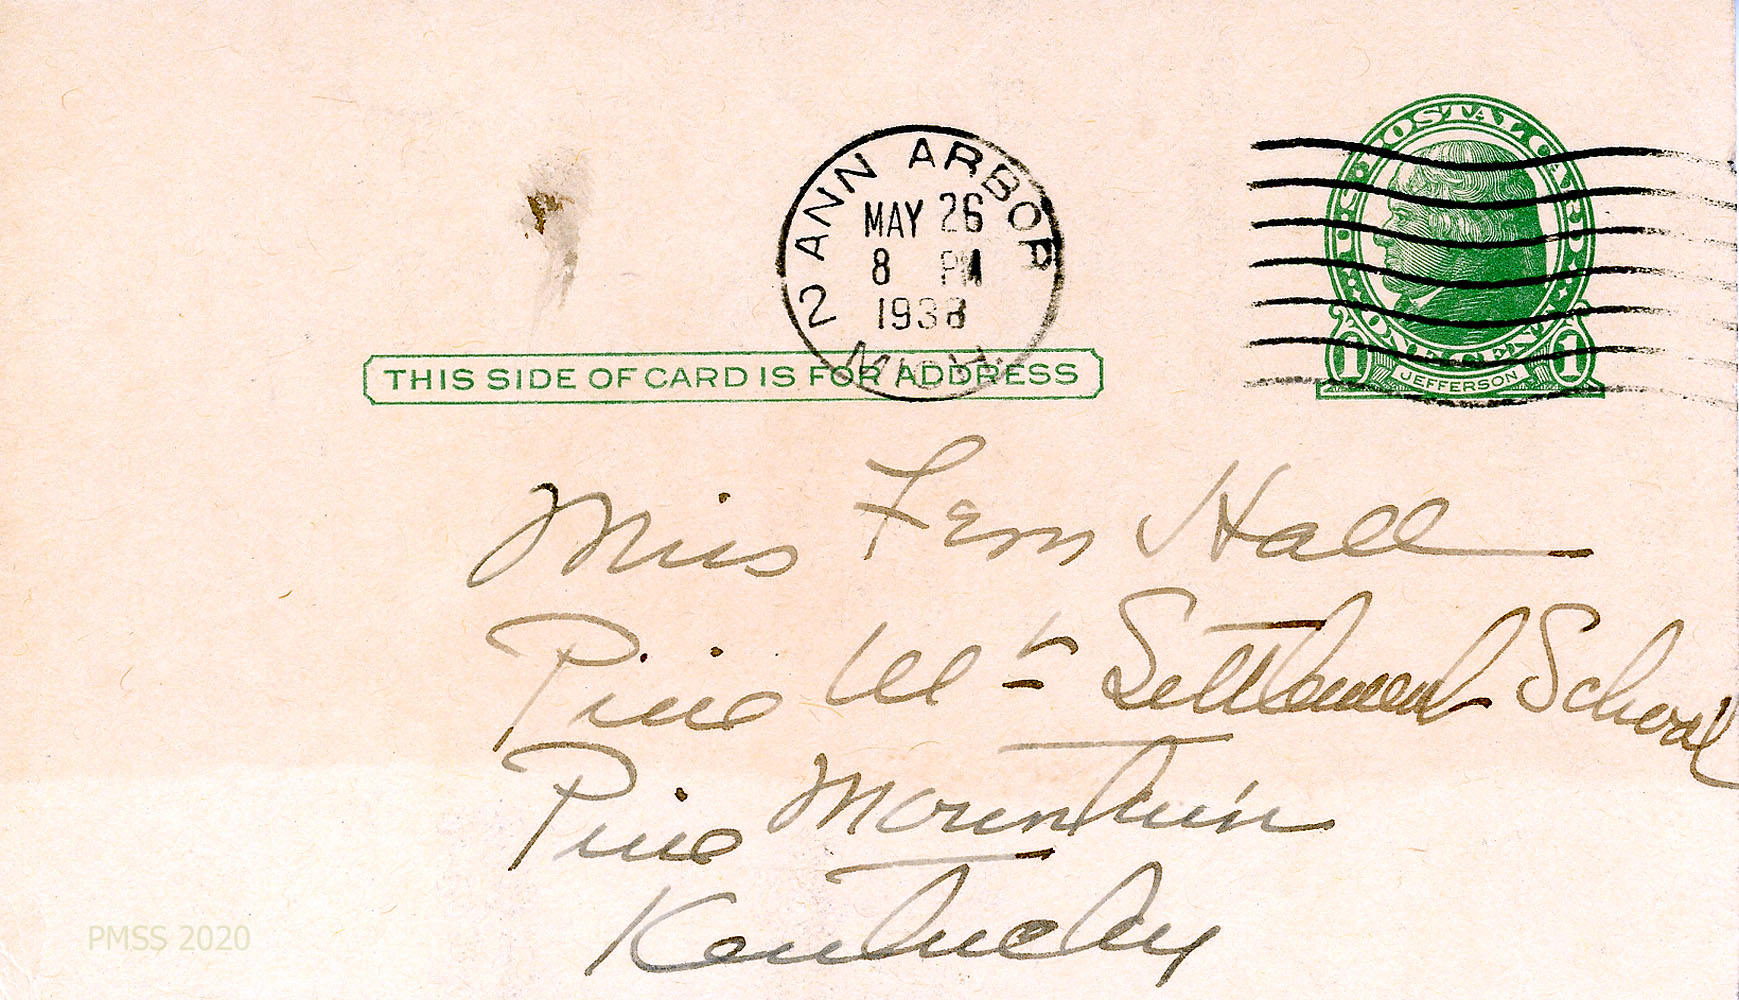 2 ANN ARBOR
MAY 26
8 PM
1938
MICH.
U·S·POSTAL CARD·
ONE CENT
1 JEFFERSON 1
THIS SIDE OF CARD IS FOR ADDRESS
Miss Fern Hall
Pine Mt Settlement School
Pine Mountain
Kentucky
PMSS 2020